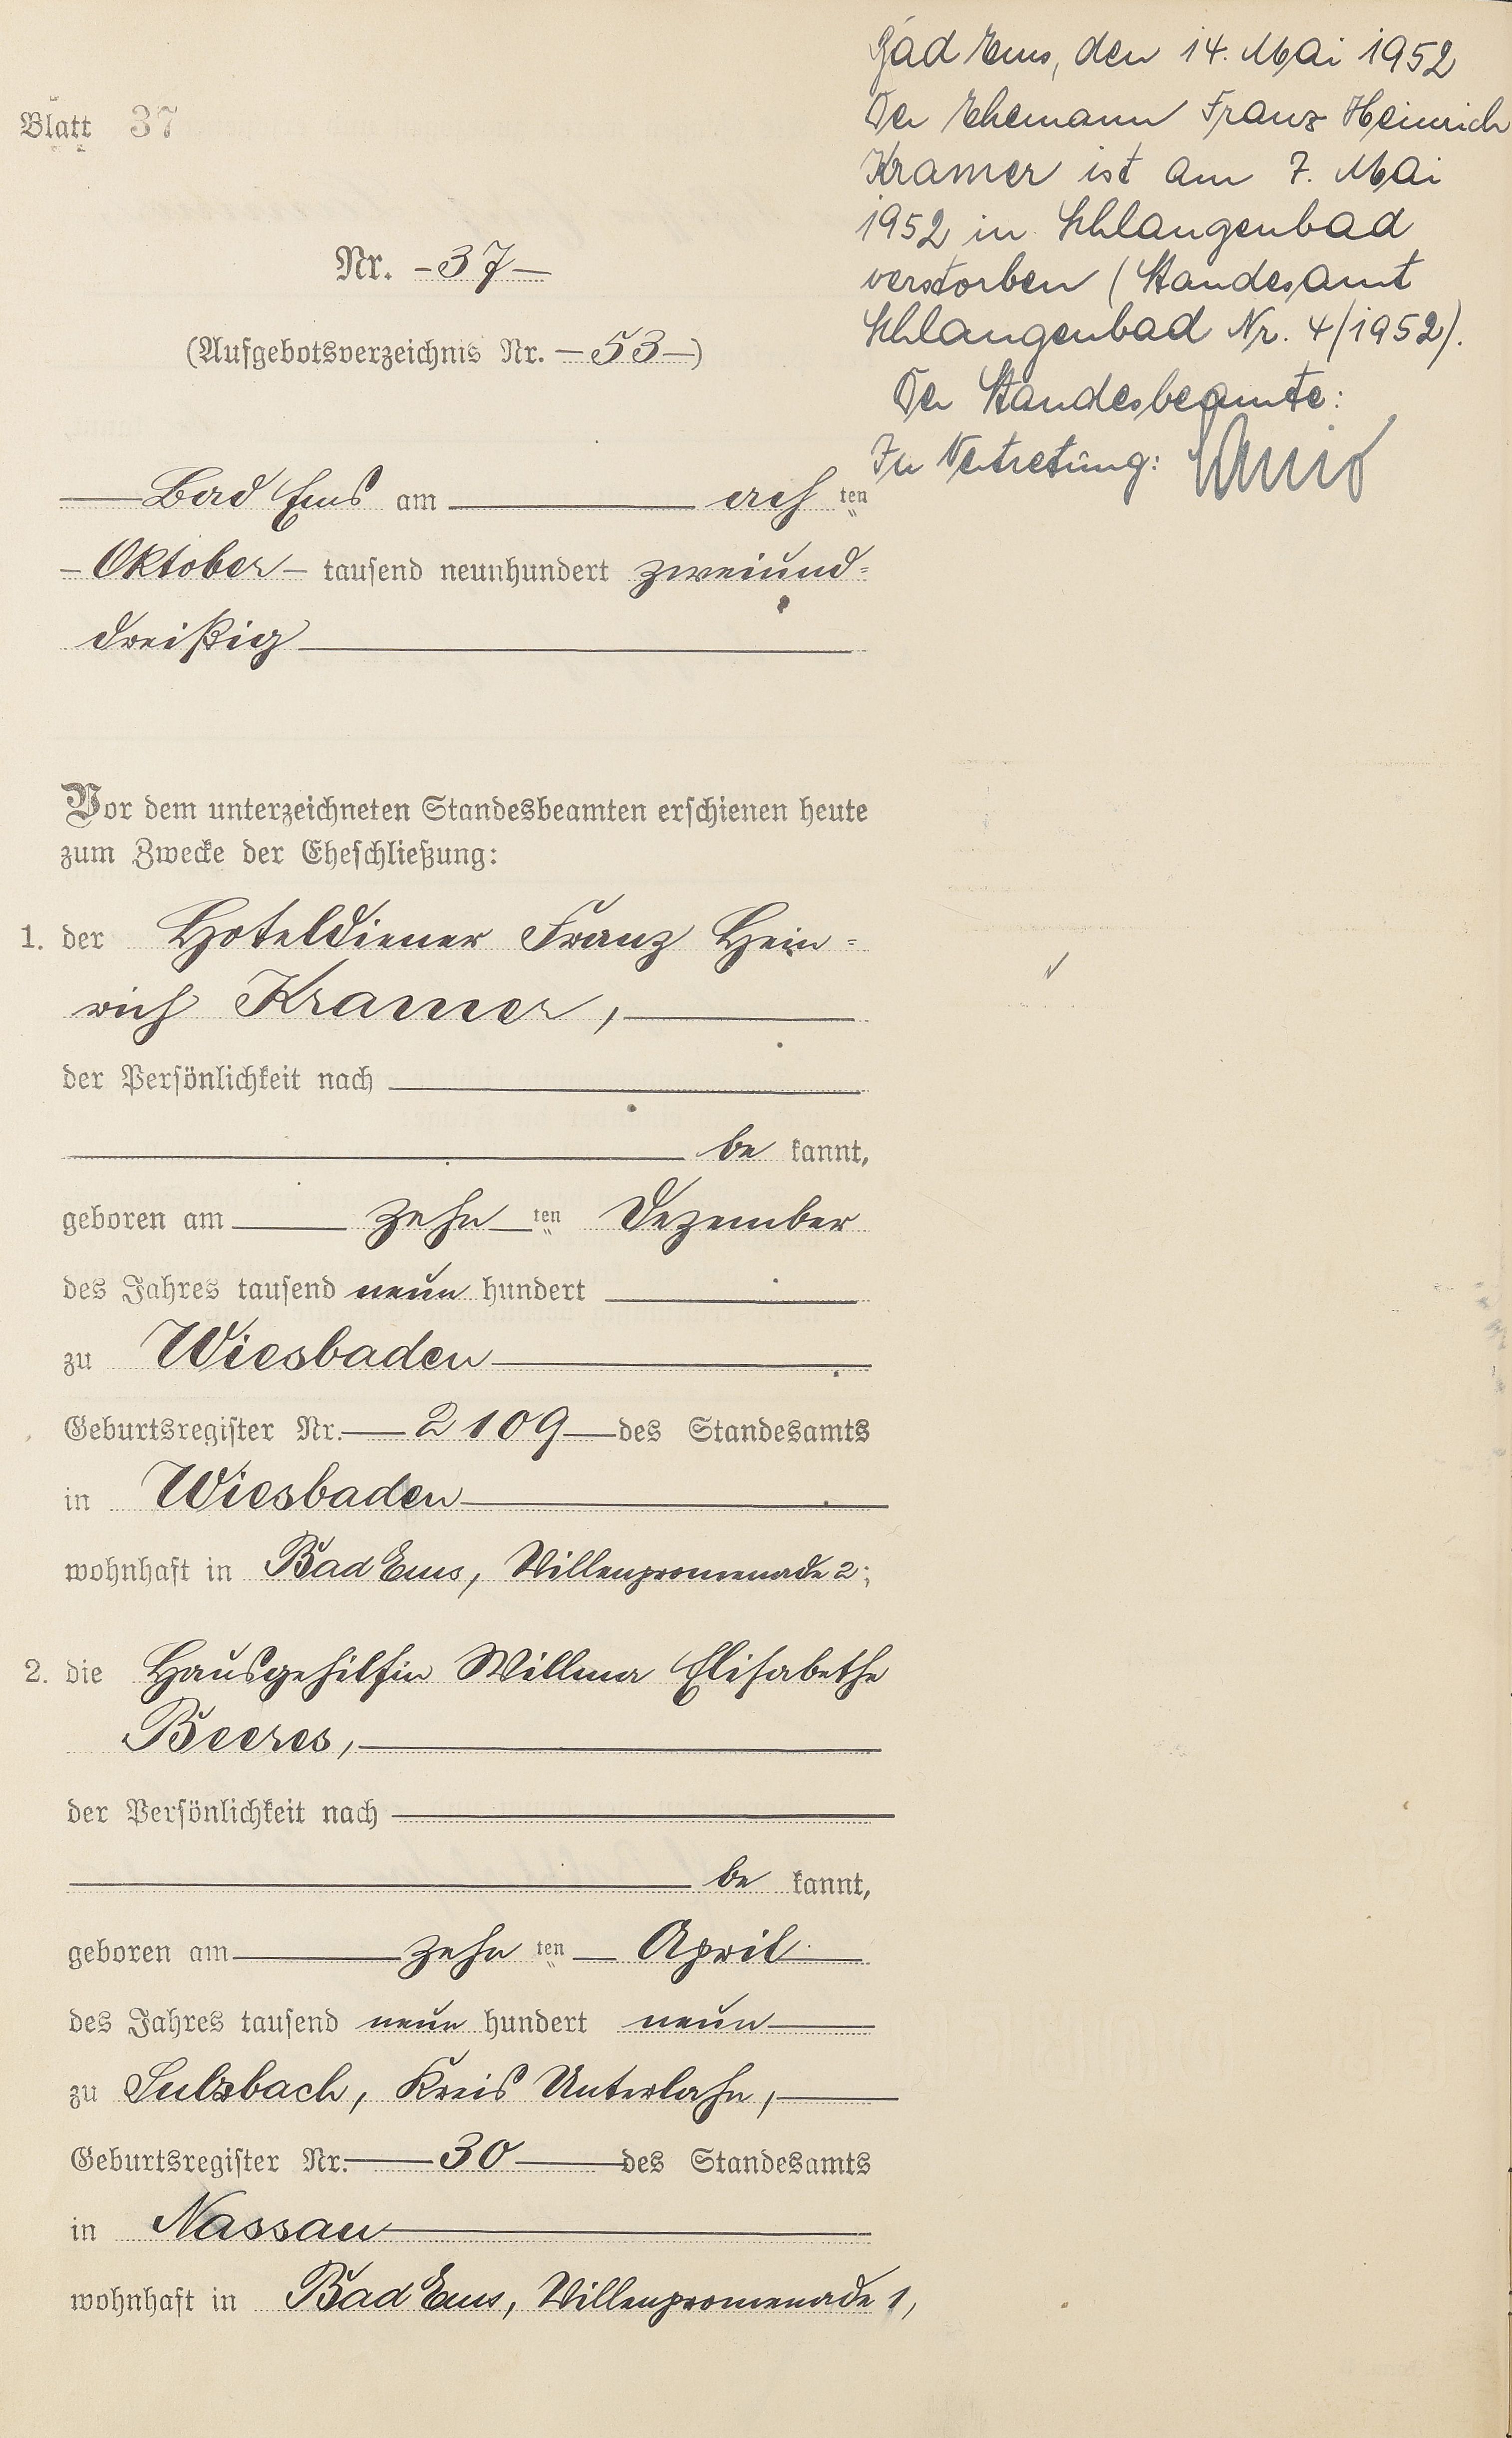 Blatt 37
Nr. – 37 –
(Aufgebotsverzeichnis Nr. – 53 –)
Bad Ems am ach ten
– Oktober – tausend neunhundert zweiund=
dreißig
Vor dem unterzeichneten Standesbeamten erschienen heute
zum Zwecke der Eheschließung:
1. der Hoteldiener Franz Hein=
rich Kramer,
der Persönlichkeit nach
be kannt,
geboren am zehn ten Dezember
des Jahres tausend neun hundert
zu Wiesbaden
Geburtsregister Nr. 2109 des Standesamts
in Wiesbaden
wohnhaft in Bad Ems, Villenpromenade 2;
2. die Hausgehilfin Willma Elisabethe
Beeres,
der Persönlichkeit nach
be kannt,
geboren am zehn ten April
des Jahres tausend neun hundert neun
zu Sulzbach, Kreis Unterlahn,
Geburtsregister Nr. 30 des Standesamts
in Nassau
wohnhaft in Bad Ems, Villenpromenade 1,
Bad Ems, den 14. Mai 1952
Der Ehemann Franz Heinrich
Kramer ist am 7. Mai
1952 in Schlangenbad
verstorben (Standesamt
Schlangenbad Nr. 4/1952).
Der Standesbeamte:
In Vertretung: